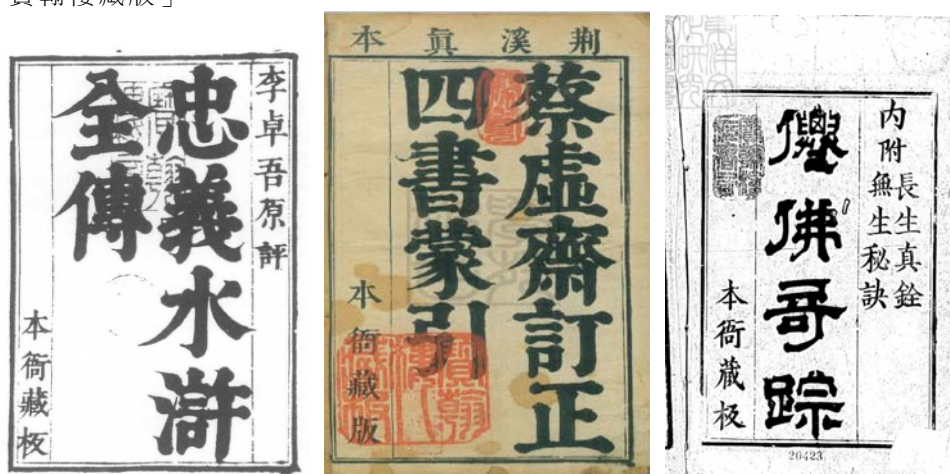 寶翰樓藏版」
李卓吾原評
忠義水滸
全傳
本衙藏板
荆溪真本
蔡虛齋訂正
四書蒙引
本衙藏版
内附長生真銓
無生秘訣
僊佛奇踪
本衙藏板
20423